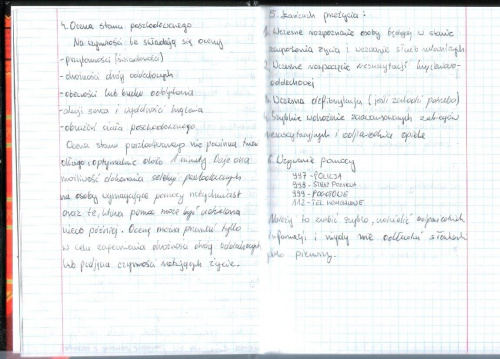 4. Ocena stanu poszkodowanego
Na czynności te składają się oceny
- przytomności (świadomości)
- drożności dróg oddechowych
- obecności lub braku oddychania
- akcji serca i wydolności krążenia
- obrażeń ciała poszkodowanego.
Ocena stanu poszkodowanego nie powinna trwać
długo i optymalnie około 1 minuty. Daje ona
możliwość dokonania selekcji poszkodowanych
na osoby wymagające pomocy natychmiast
oraz te, którym pomoc może być udzielona
nieco później. Ocenę można przerwać tylko
w celu zapewnienia drożności dróg oddechowych
lub podjęcia czynności ratujących życie.
5. Łańcuch przeżycia:
1. Wczesne rozpoznanie osoby będącej w stanie
zagrożenia życia i wezwanie służb ratowniczych
2. Wczesne rozpoczęcie resuscytacji krążeniowo-
oddechowej
3. Wczesna defibrylacja (jeśli zachodzi potrzeba)
4. Szybkie wdrożenie zaawansowanych zabiegów
resuscytacyjnych i odpowiednia opieka
6. Wzywanie pomocy
997 - POLICJA
998 - STRAŻ POŻARNA
999 - POGOTOWIE
112 - TEL. KOMÓRKOWE
Należy to zrobić szybko, udzielić odpowiednich
informacji i nigdy nie odkładać słuchawki
jako pierwszy.